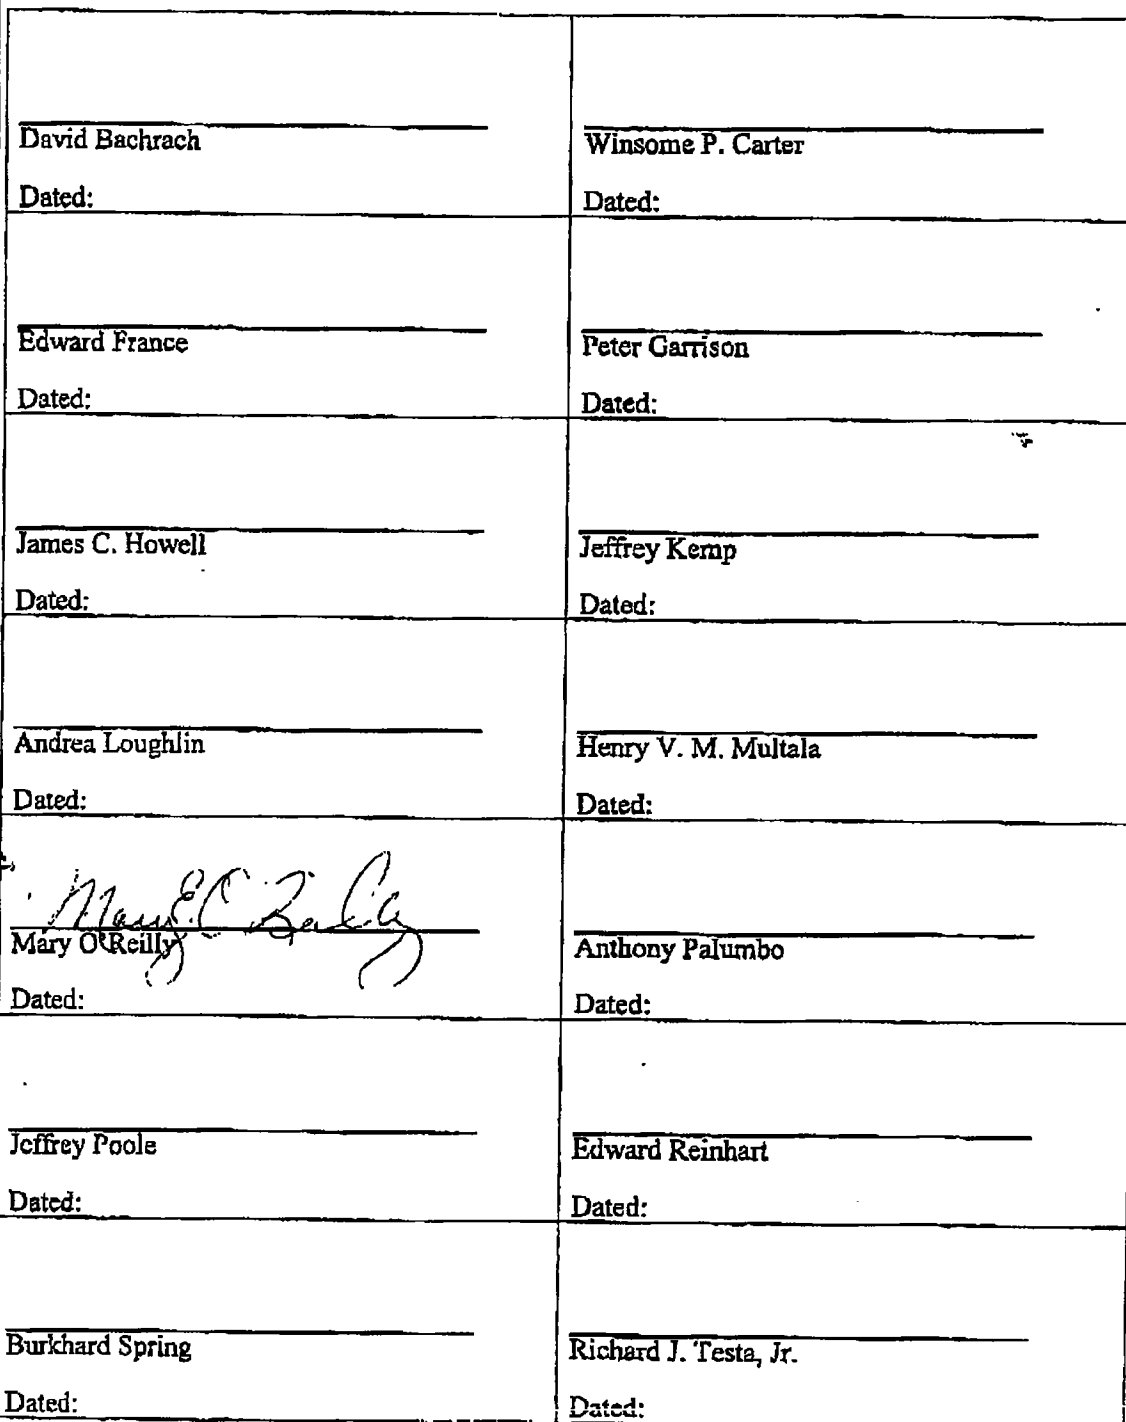 David Bachrach
Dated:
Winsome P. Carter
Dated:
Edward France
Dated:
Peter Garrison
Dated:
James C. Howell
Dated:
Jeffrey Kemp
Dated:
Andrea Loughlin
Dated:
Henry V. M. Multala
Dated:
Mary E. O'Reilly
Mary O'Reilly
Dated:
Anthony Palumbo
Dated:
Jeffrey Poole
Dated:
Edward Reinhart
Dated:
Burkhard Spring
Dated:
Richard J. Testa, Jr.
Dated: